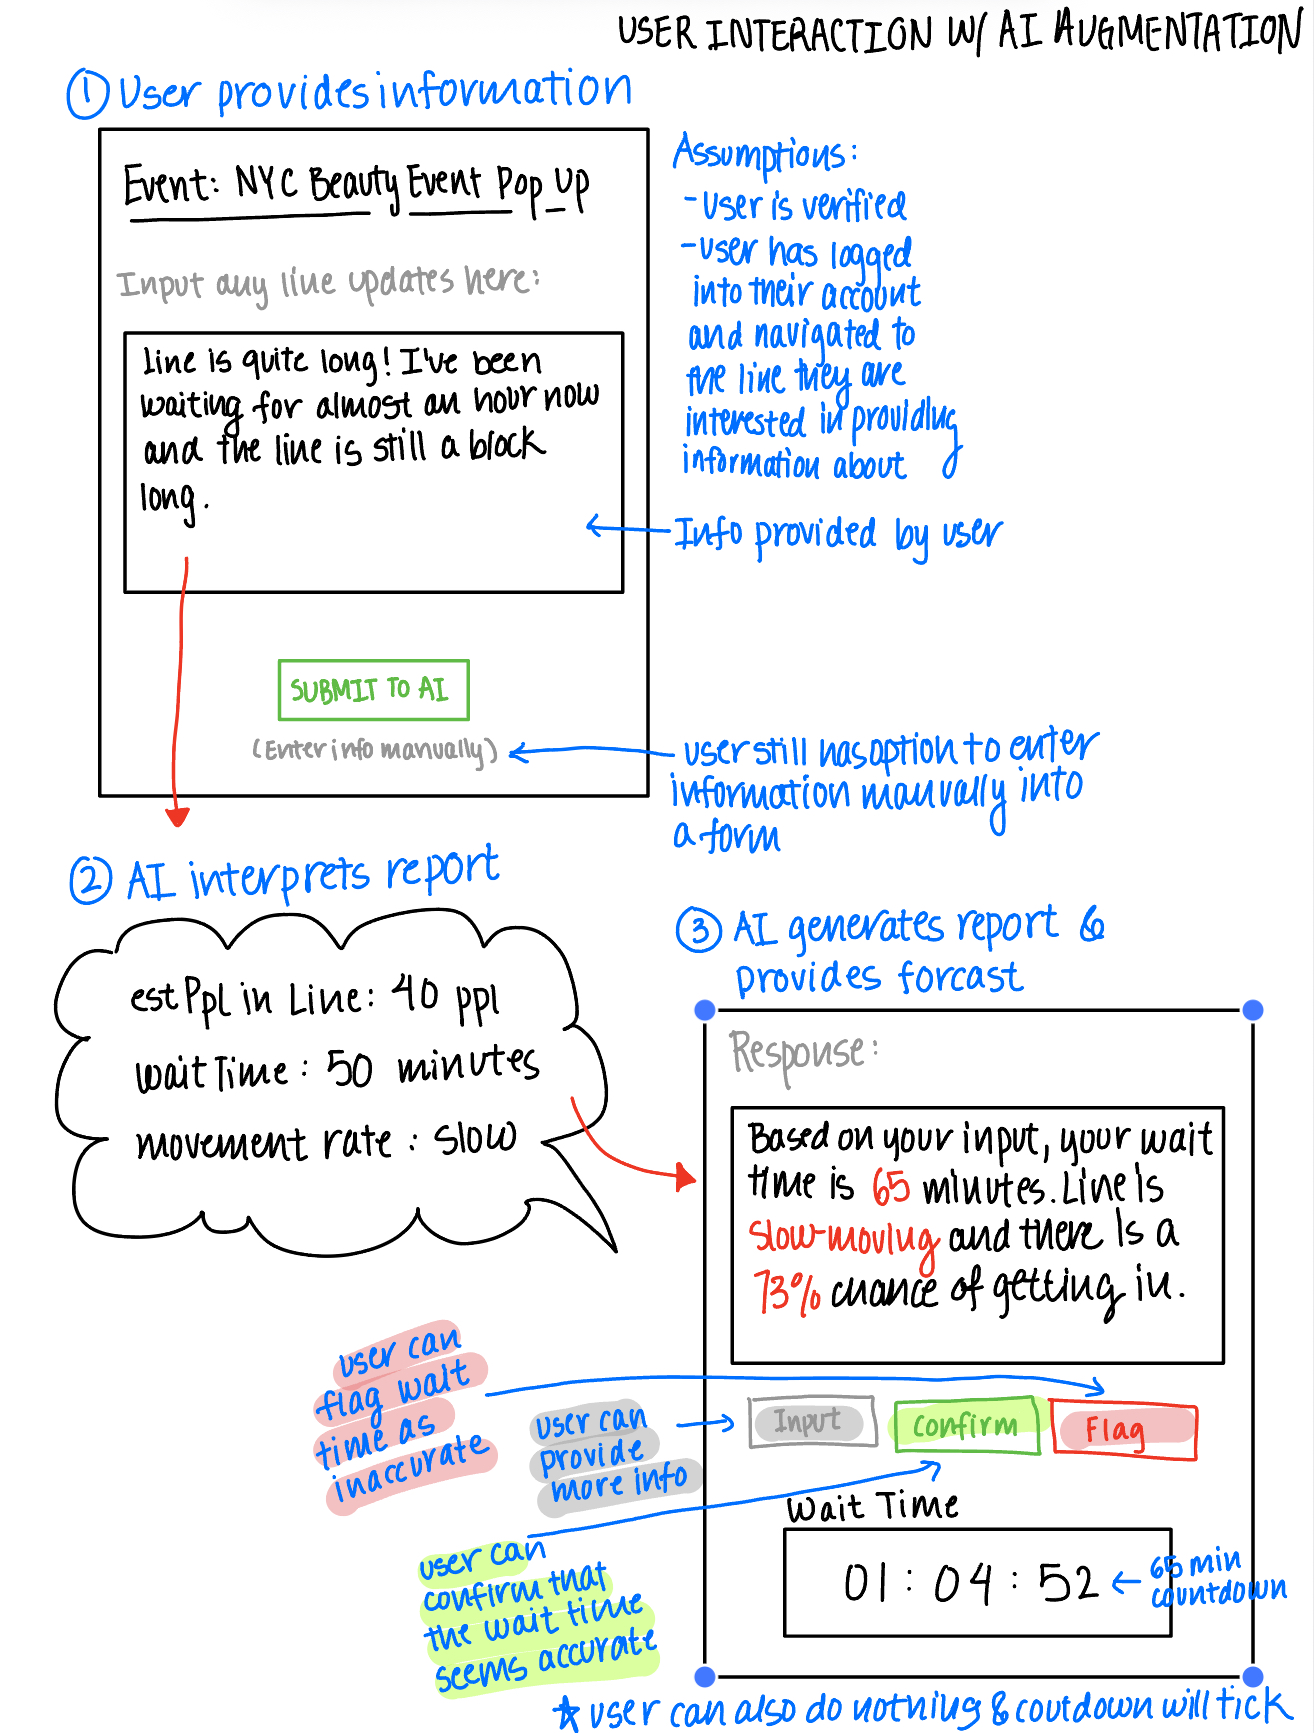 USER INTERACTION W/ AI AUGMENTATION
① User provides information
Event: NYC Beauty Event Pop Up
Input any line updates here:
line is quite long! I've been
waiting for almost an hour now
and the line is still a block
long.
SUBMIT TO AI
(Enter info manually)
Assumptions:
- User is verified
- user has logged
into their account
and navigated to
the line they are
interested in providing
information about
Info provided by user
user still has option to enter
information manually into
a form
② AI interprets report
est Ppl in Line: 40 ppl
wait Time: 50 minutes
movement rate: slow
③ AI generates report &
provides forcast
Response:
Based on your input, your wait
time is 65 minutes. Line is
slow-moving and there is a
73% chance of getting in.
Input
Confirm
Flag
user can
flag wait
time as
inaccurate
user can
provide
more info
user can
confirm that
the wait time
seems accurate
Wait Time
01:04:52
65 min
countdown
☆ user can also do nothing & coutdown will tick